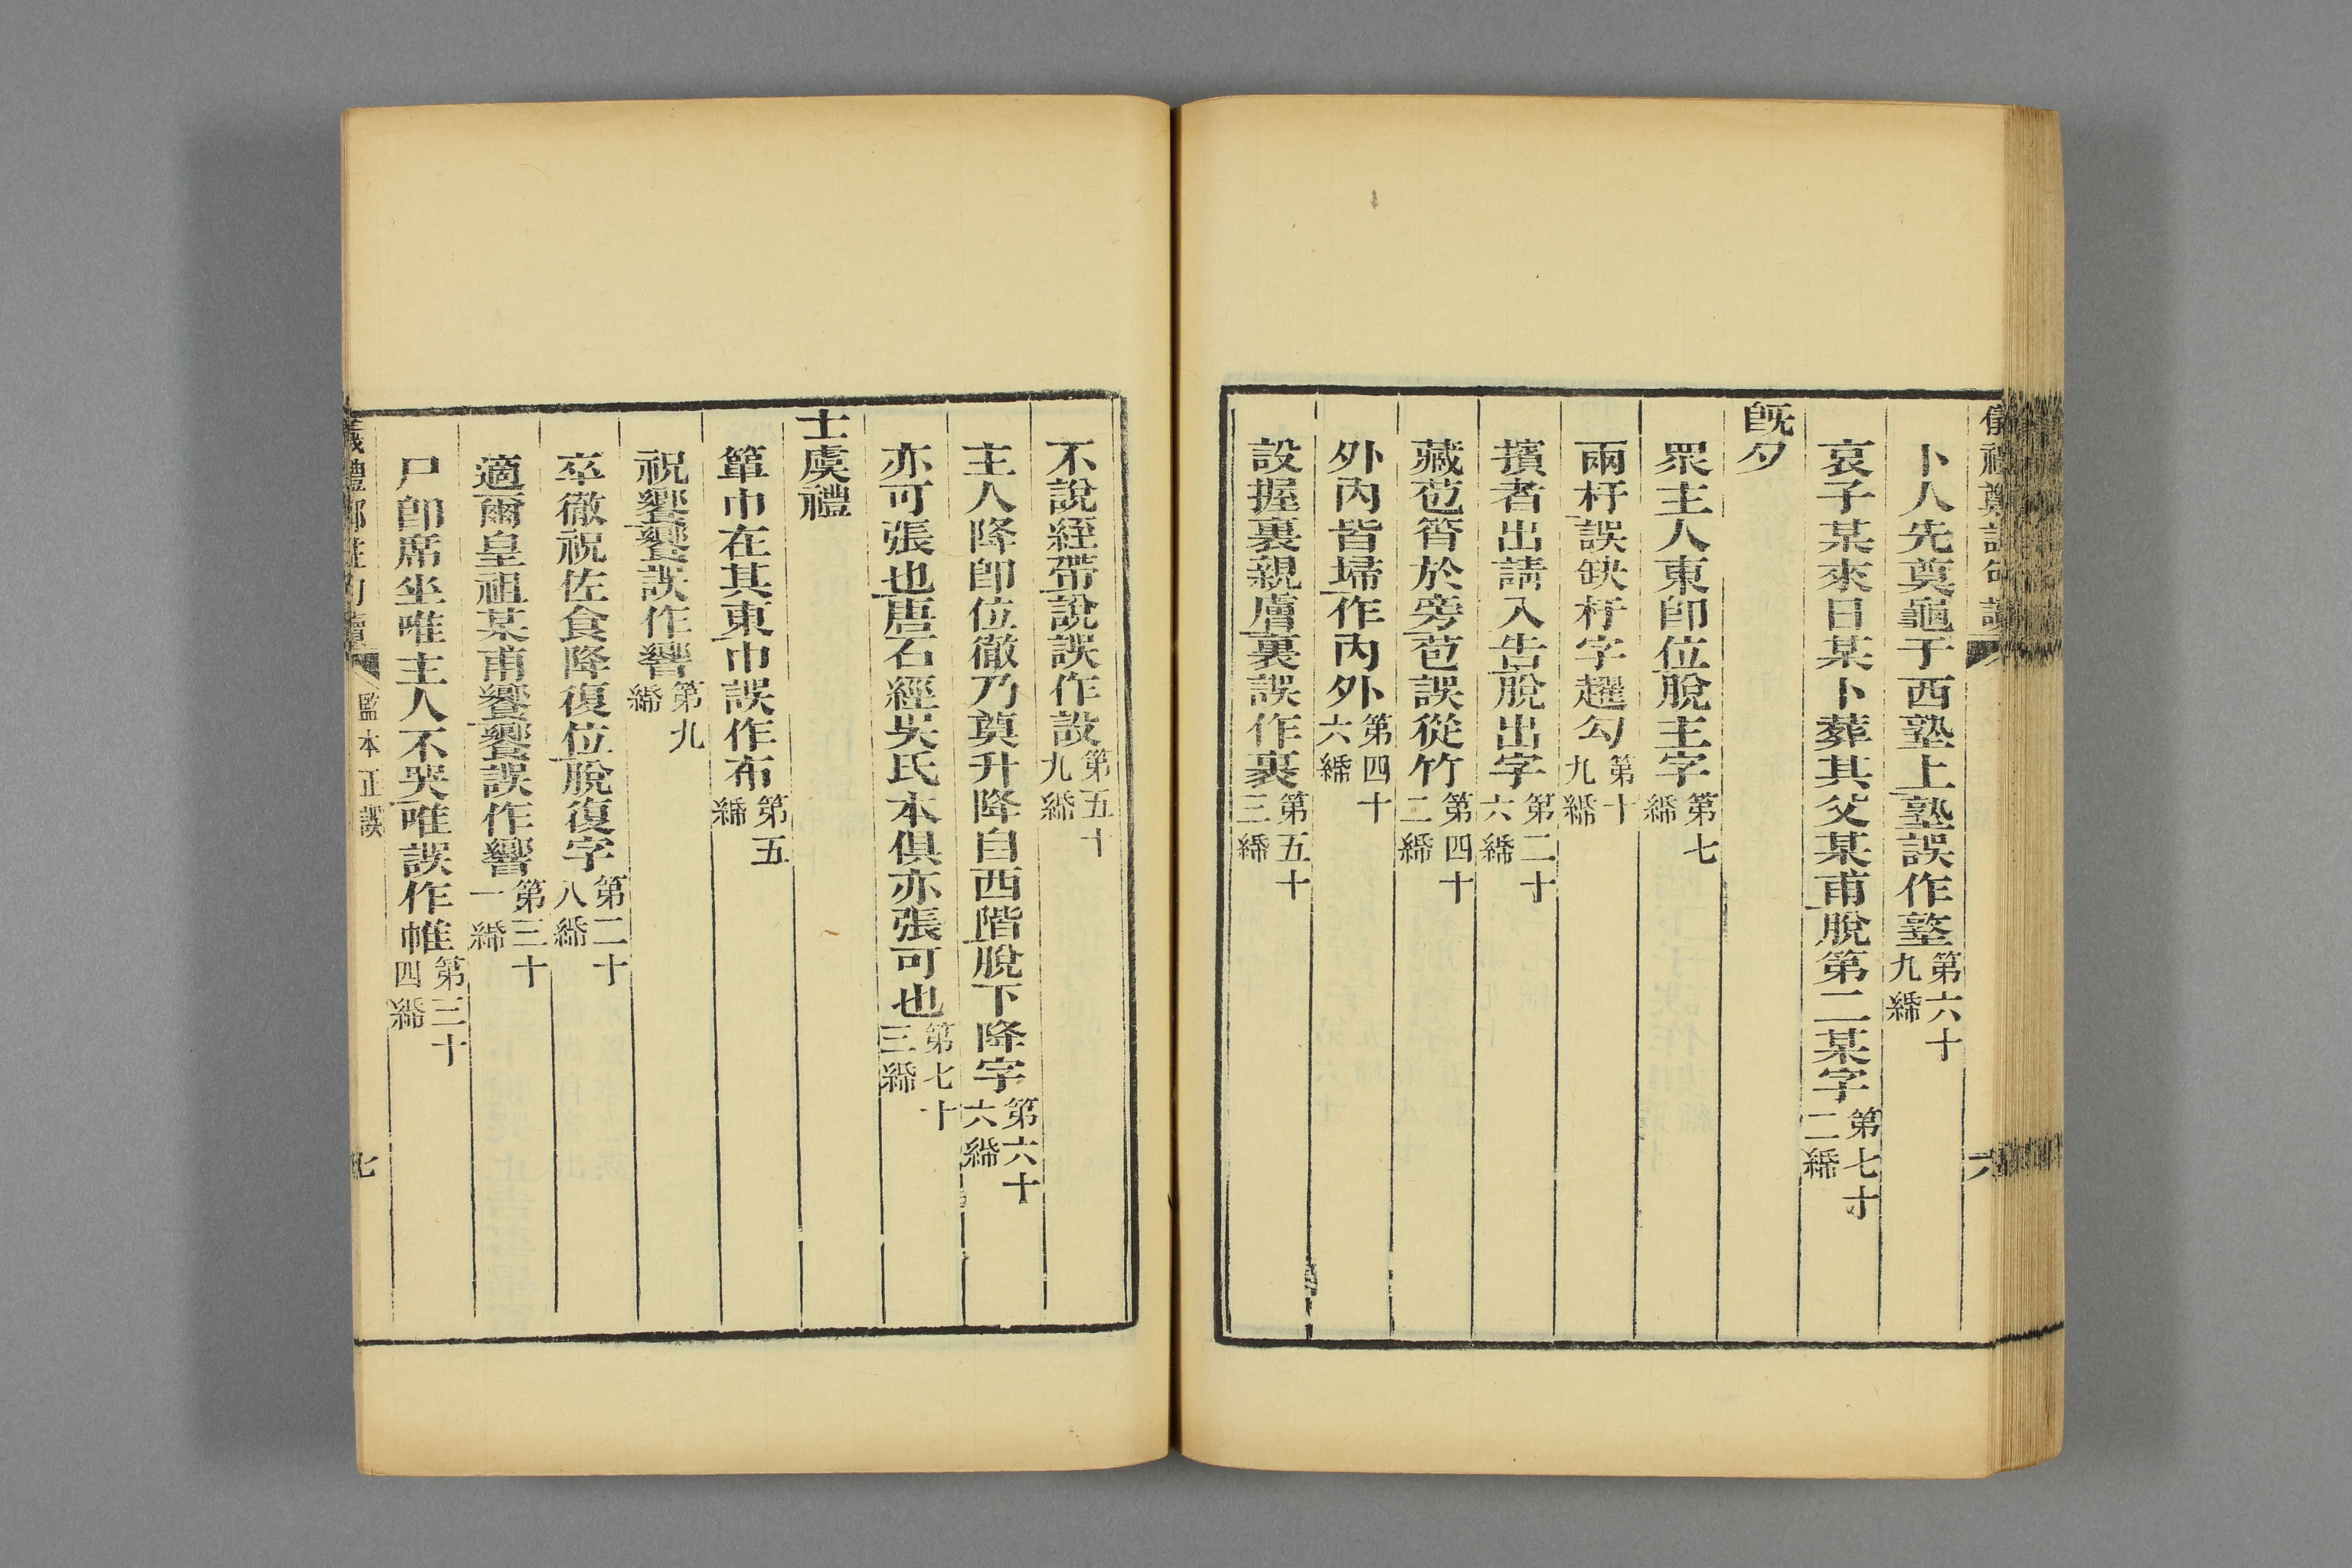 卜人先奠龜于西塾上塾誤作墪第六十九緉
哀子某來日某卜葬其父某甫脫第二某字第七十二緉
旣夕
眾主人東卽位脫主字第七緉
兩杅誤缺杅字趯勾第十九緉
擯者出請入告脫出字第二十六緉
藏苞筲於旁苞誤從竹第四十二緉
外內皆埽作內外第四十六緉
設握裏親膚裏誤作裹第五十三緉
不說絰帶說誤作設第五十九緉
主人降卽位徹乃奠升降自西階脫下降字第六十六緉
亦可張也唐石經吳氏本俱亦張可也第七十三緉
士虞禮
簞巾在其東巾誤作布第五緉
祝饗饗誤作響第九緉
卒徹祝佐食降復位脫復字第二十八緉
適爾皇祖某甫饗饗誤作響第三十一緉
尸卽席坐唯主人不哭唯誤作帷第三十四緉
監本正誤
七